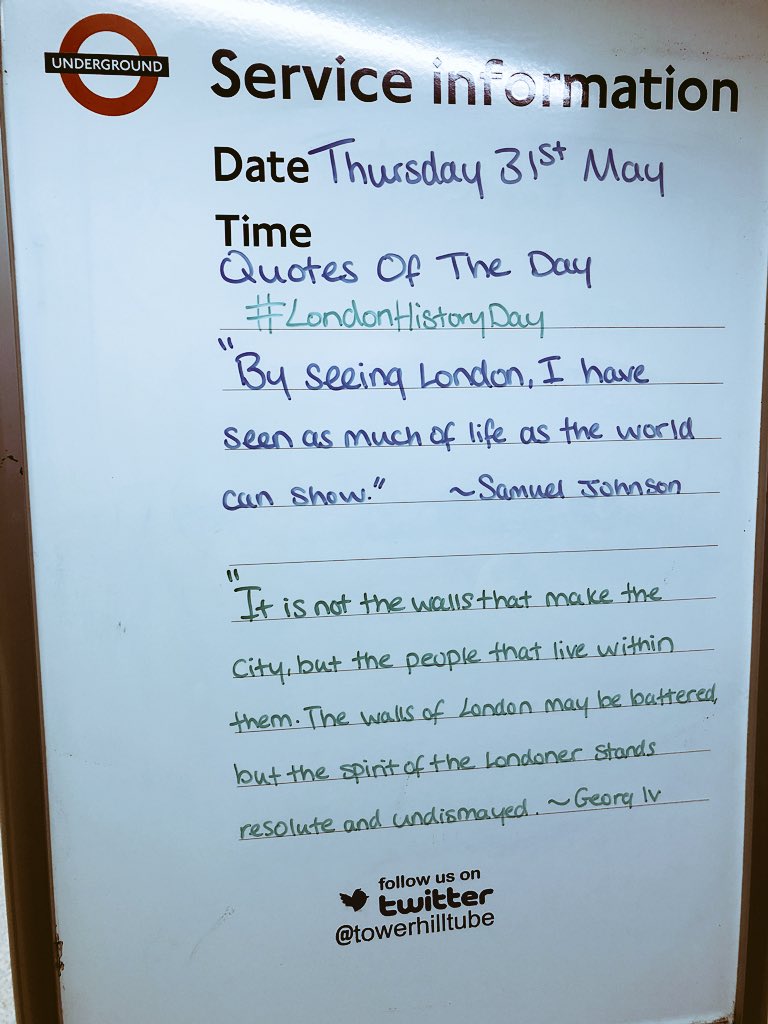 UNDERGROUND
Service information
Date Thursday 31st May
Time
Quotes Of The Day
#LondonHistoryDay
"By seeing London, I have
seen as much of life as the world
can show." ~Samuel Johnson
"It is not the walls that make the
City, but the people that live within
them. The walls of London may be battered,
but the spirit of the Londoner stands
resolute and undismayed. ~Georg IV
follow us on
twitter
@towerhilltube